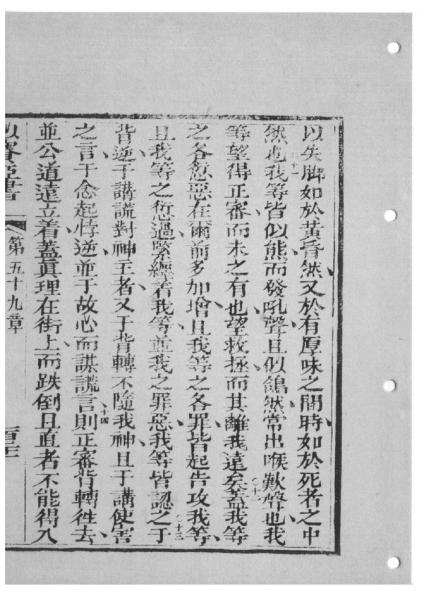 以失脚如於黃昏然又於有厚味之間時如於死者之中
然也十一我等皆似熊而發吼聲且似鴿然常出喉歎聲也我
等望得正審而未之有也望救拯而其離我遠矣十二蓋我等
之各愆惡在爾前多加增且我等之各罪皆起告攻我等
且我等之愆過緊纏着我等並我之罪惡我等皆認之十三于
背逆于講謊對神主者又于背轉不隨我神且于講使害
之言于念起悖逆並于故心而謀謊言十四則正審背轉徃去
並公道遠立着蓋眞理在街上而跌倒且直者不能得入
以賽亞書 第五十九章